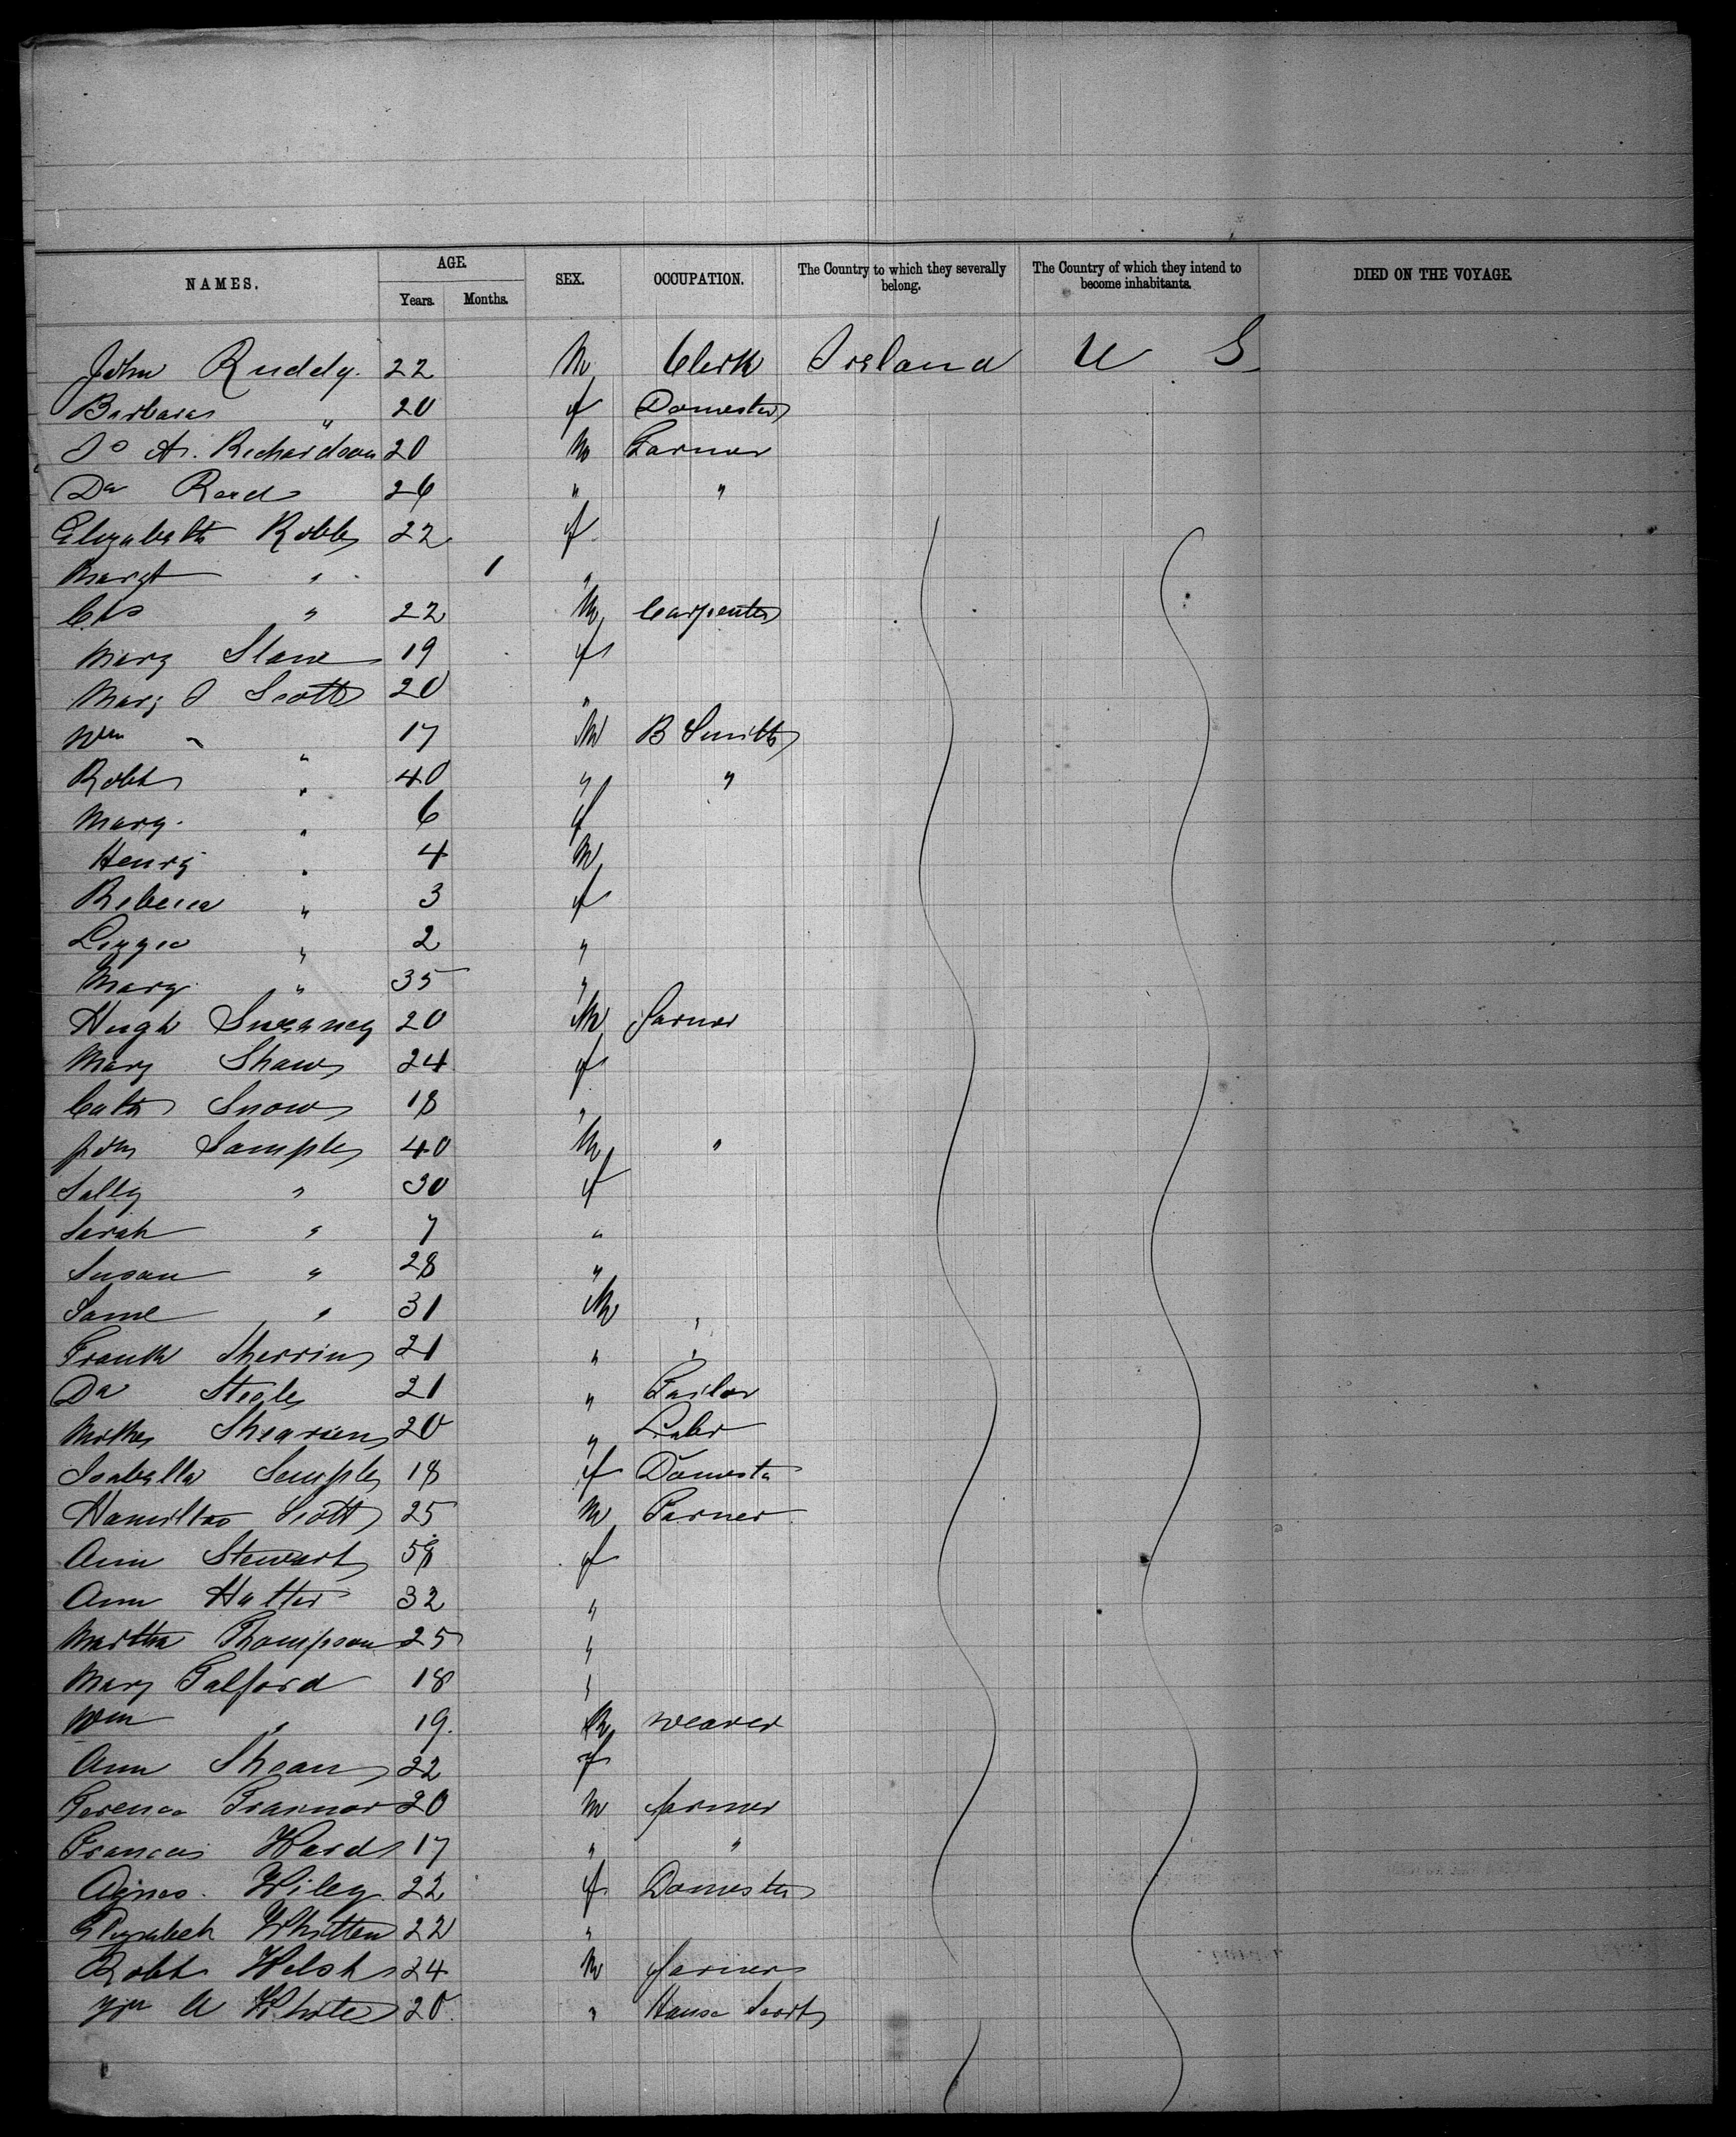 NAMES. AGE. SEX. OCCUPATION. The Country to which they severally belong. The Country of which they intend to become inhabitants. DIED ON THE VOYAGE.
Years. Months.
John Ruddy. 22 M Clerk Ireland U S
Barbara " 20 f Domestic
Jo A. Richardson 20 M Farmer
Da Reed 26 " "
Elizabeth Robb 22 f
Margt " 1 "
Chs " 22 M Carpenter
Mary Slane 19 f
Mary J Scott 20 "
Wm " 17 M B Smith
Robt " 40 " "
Mary " 6 f
Henry " 4 M
Rebecca " 3 f
Lizzie " 2 "
Mary " 35 "
Hugh Sweaney 20 M farmer
Mary Shaw 24 f
Cath Snow 18 "
Jon Sample 40 M "
Sally " 30 f
Sarah " 7 "
Susan " 28 "
Saml " 31 M "
Frank Sherrin 21 " "
Da Steele 21 " Tailor
Shearien 20 " Labr
Isabella Semple 18 f Domestc
Hamilton Scott 25 M Farmer
Ann Stewart 58 f
Ann Hatter 32 "
Martha Thompson 25 "
Mary Talford 18 "
Wm " 19. M weaver
Ann Shean 22 f
Terence Traenor 20 M farmer
Francis Ward 17 " "
Agnes. Wiley 22 f Domestic
Elizabeth Whitten 22 "
Robt Welsh 24 M farmer
Wm A White 20. " House Servt